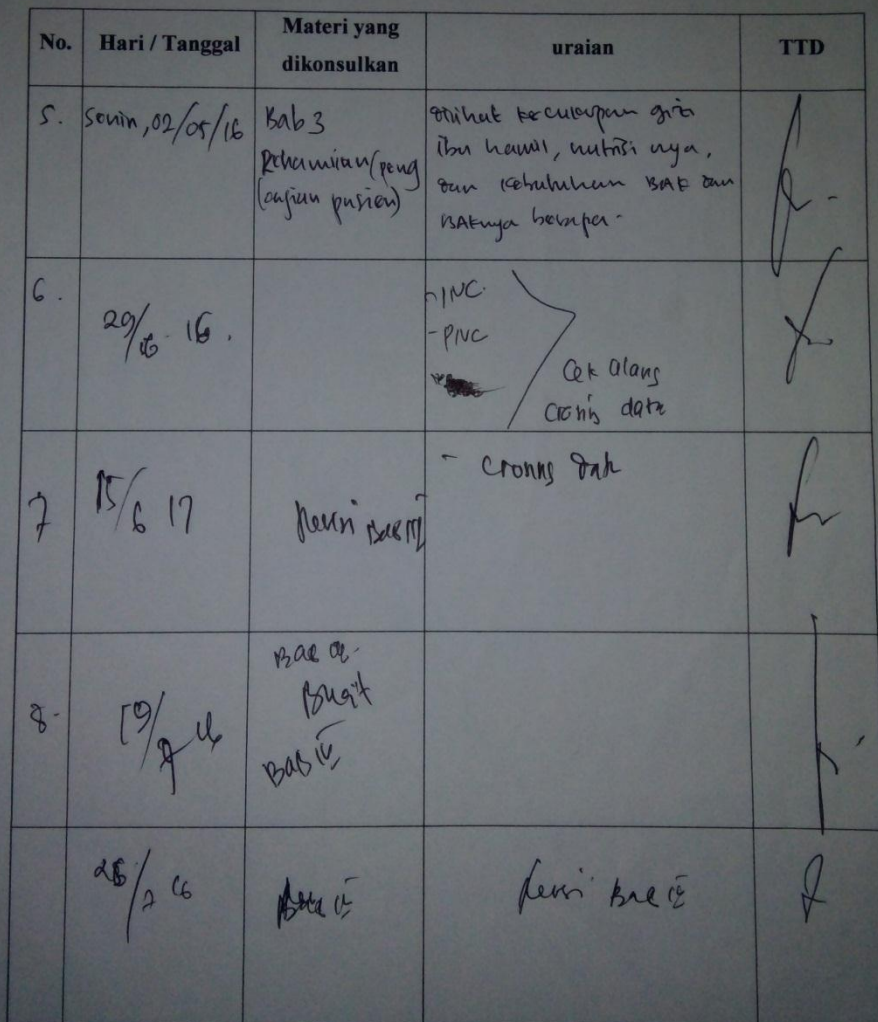 No.
Hari / Tanggal
Materi yang
dikonsulkan
uraian
TTD
5.
Senin, 02/05/16
Bab 3
Kehamilan (peng
kajian pasien)
dilihat kecukupan gizi
ibu hamil, nutrisi nya,
dan kebutuhan BAK dan
BAKnya berapa -
6.
29/ 16.
- INC
- PNC
Cek ulang
data
7
15/6 17
Revisi Bab III
-
8.
19/7 16
Bab
Buat
BAB IV
26/7 16
Bab IV
Revisi Bab IV